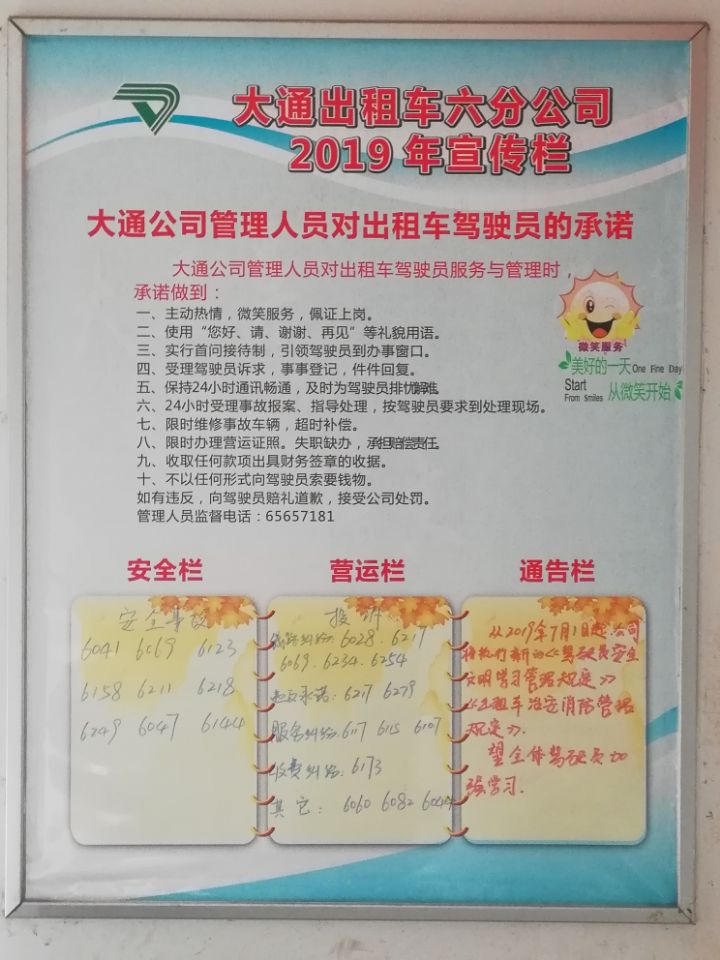 大通出租车六分公司
2019年宣传栏
大通公司管理人员对出租车驾驶员的承诺
大通公司管理人员对出租车驾驶员服务与管理时，
承诺做到：
一、主动热情，微笑服务，佩证上岗。
二、使用“您好、请、谢谢、再见”等礼貌用语。
三、实行首问接待制，引领驾驶员到办事窗口。
四、受理驾驶员诉求，事事登记，件件回复。
五、保持24小时通讯畅通，及时为驾驶员排忧解难。
六、24小时受理事故报案、指导处理，按驾驶员要求到处理现场。
七、限时维修事故车辆，超时补偿。
八、限时办理营运证照。失职缺办，承担赔偿责任。
九、收取任何款项出具财务签章的收据。
十、不以任何形式向驾驶员索要钱物。
如有违反，向驾驶员赔礼道歉，接受公司处罚。
管理人员监督电话：65657181
微笑服务
美好的一天 One Fine Day
Start
From Smiles 从微笑开始
安全栏
安全事故
6041 6069 6123
6158 6211 6218
6249 6047 6144
营运栏
投诉
纠纷. 6028. 6217
6069. 6234. 6254
违反承诺: 6217 6279
服务纠纷. 6117 6115 6107
收费纠纷. 6173
其它: 6060 6082 6044
通告栏
从2019年7月1日起公司
将执行新的《驾驶员安全
文明学习管理规定》
《出租车治安消防管理
规定》.
望全体驾驶员加
强学习.